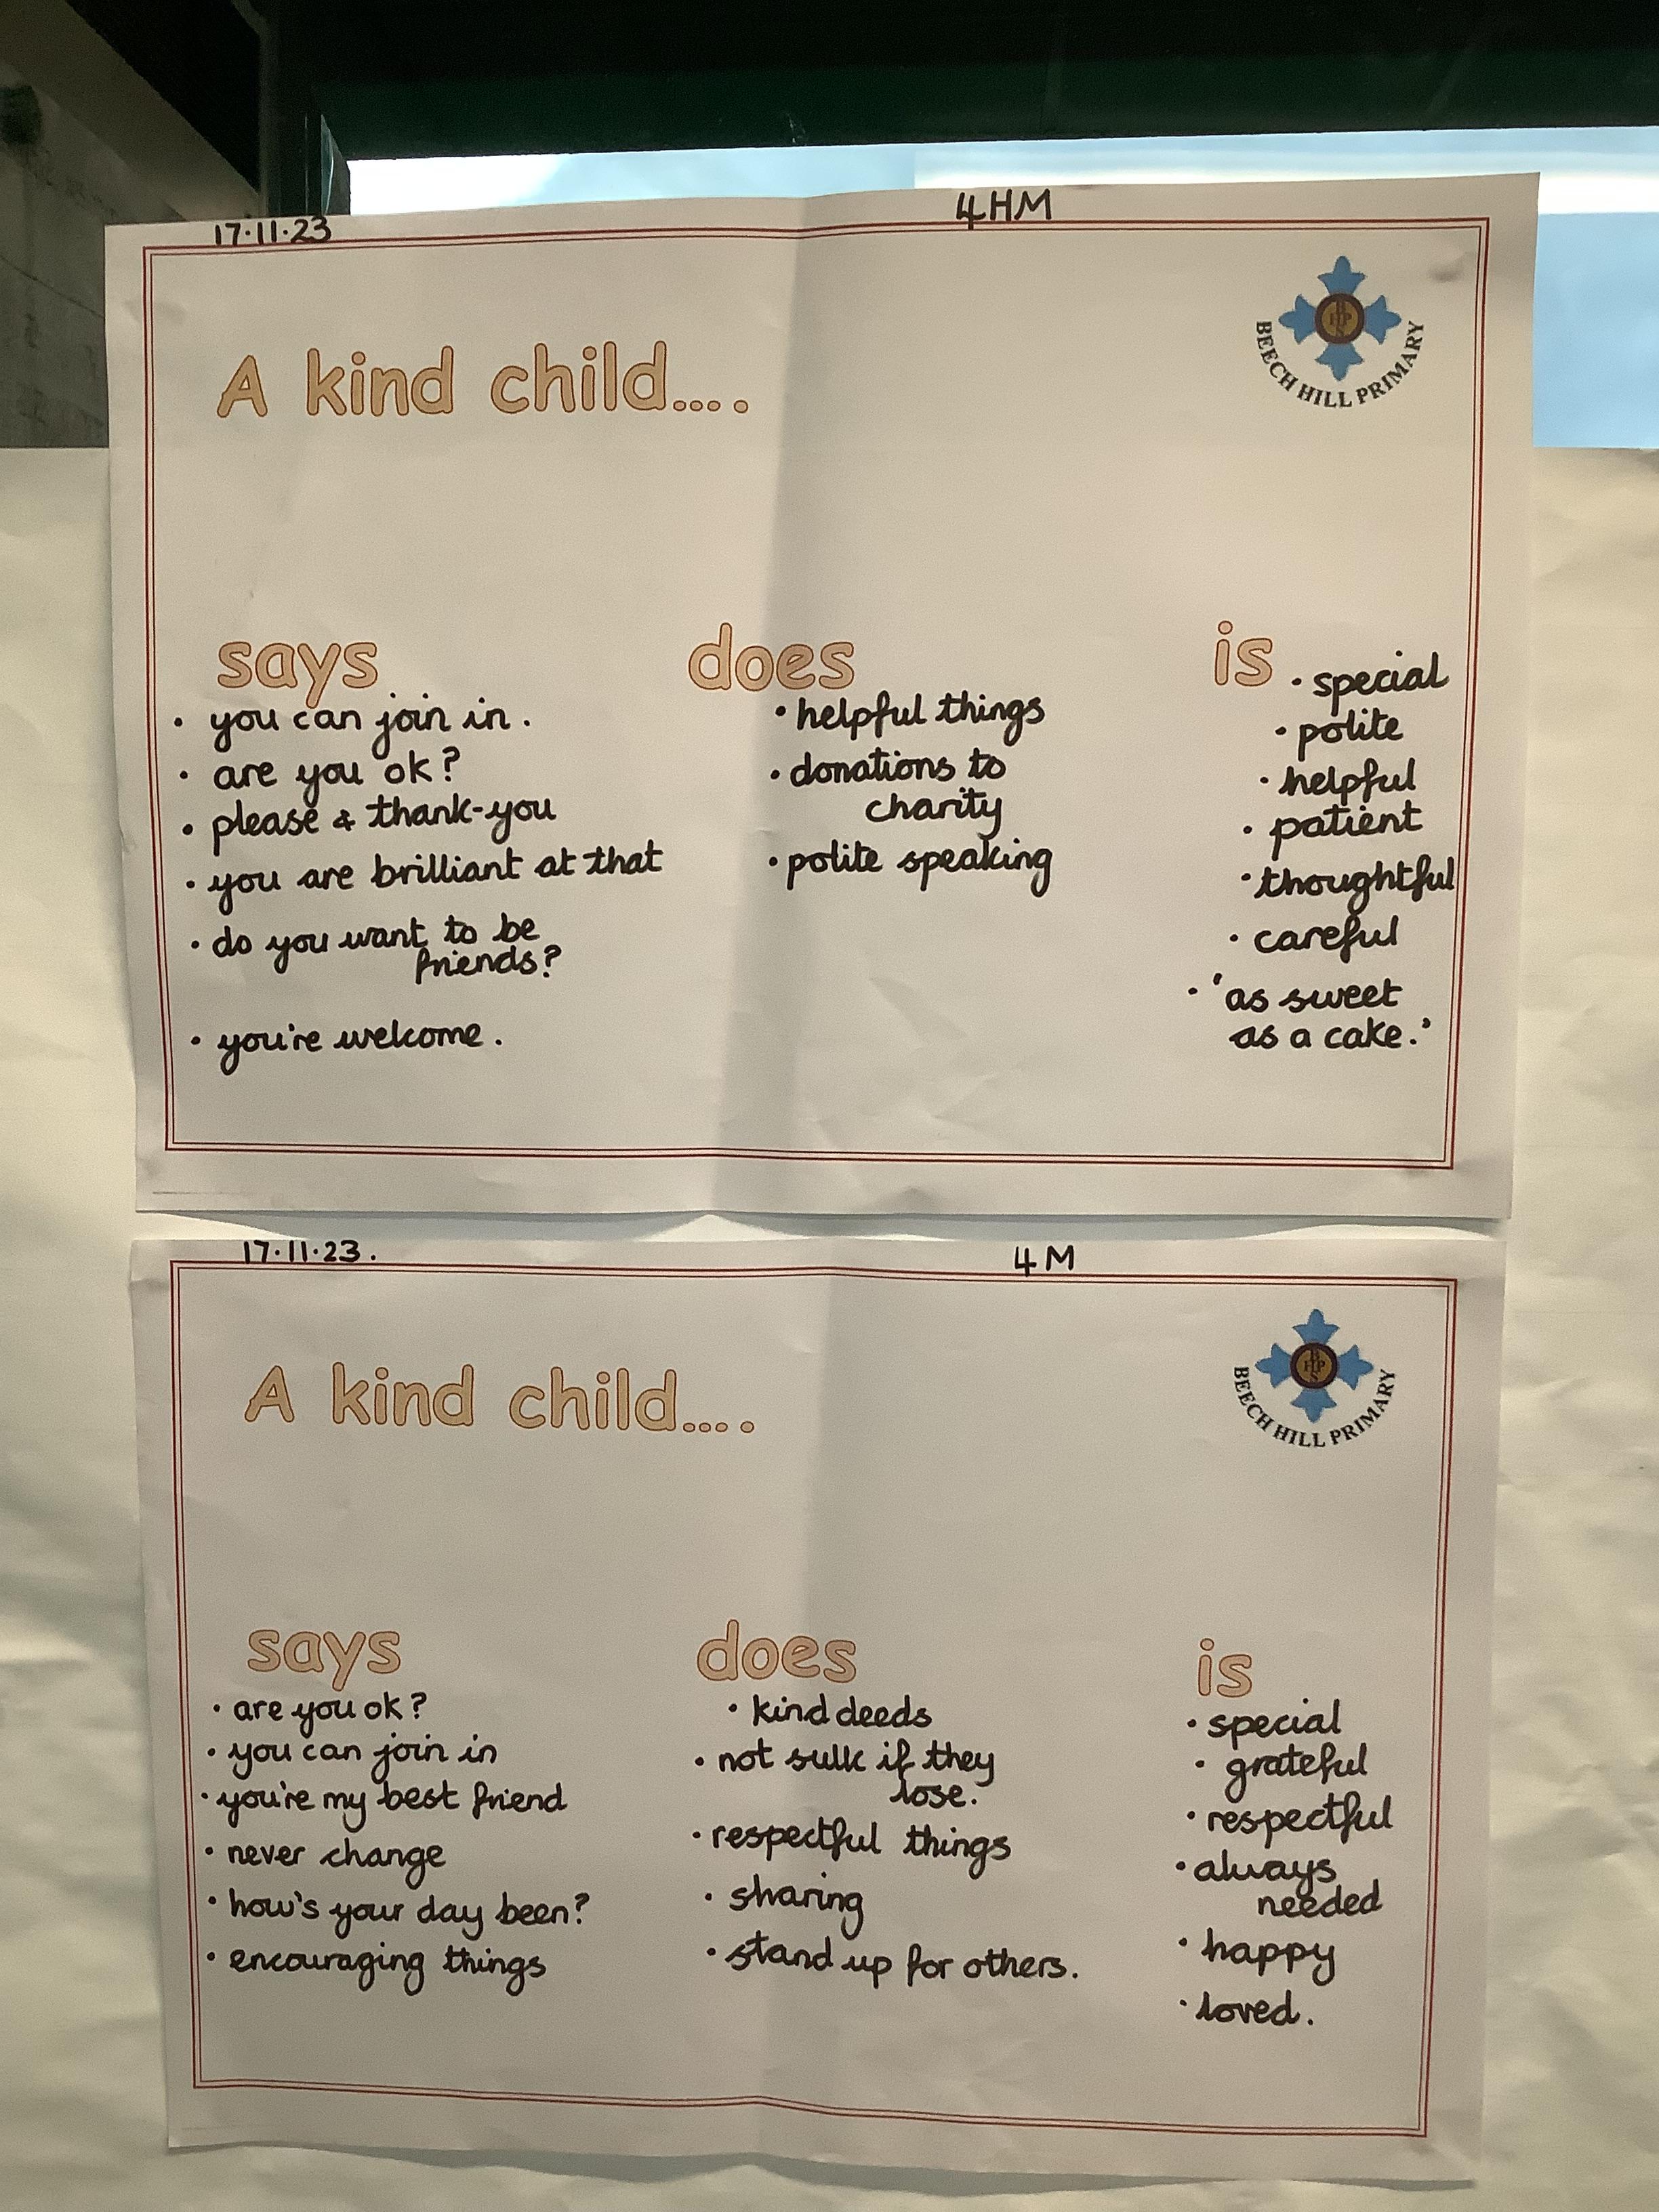 17.11.23
4HM
BHPS
BEECH HILL PRIMARY
A kind child....
says
• you can join in.
• are you ok?
• please & thank-you
• you are brilliant at that
• do you want to be
friends?
• you're welcome.
does
• helpful things
• donations to
charity
• polite speaking
is
• special
• polite
• helpful
• patient
• thoughtful
• careful
• 'as sweet
as a cake.'
17.11.23.
4M
BHPS
BEECH HILL PRIMARY
A kind child....
says
• are you ok?
• you can join in
• you're my best friend
• never change
• how's your day been?
• encouraging things
does
• kind deeds
• not sulk if they
lose.
• respectful things
• sharing
• stand up for others.
is
• special
• grateful
• respectful
• always
needed
• happy
• loved.